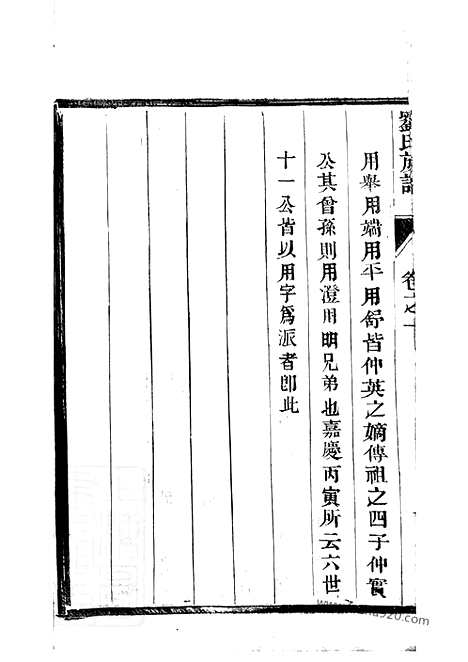 劉氏族譜
卷之一
用舉用端用平用舒皆仲英之嫡傳祖之四子仲實
公其曾孫則用澄用明兄弟也嘉慶丙寅所云六世
十一公皆以用字爲派者卽此